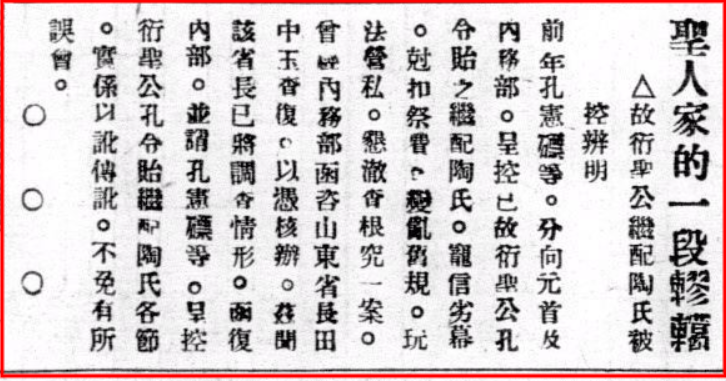 聖人家的一段轇轕
△故衍聖公繼配陶氏被
控辨明
前年孔憲礝等。分向元首及
內務部。呈控已故衍聖公孔
令貽之繼配陶氏。寵信劣幕
。尅扣祭費。變亂舊規。玩
法營私。懇澈查根究一案。
曾經內務部函咨山東省長田
中玉查復。以憑核辦。茲聞
該省長已將調查情形。函復
內部。並謂孔憲礝等。呈控
衍聖公孔令貽繼配陶氏各節
。實係以訛傳訛。不免有所
誤會。
○○○